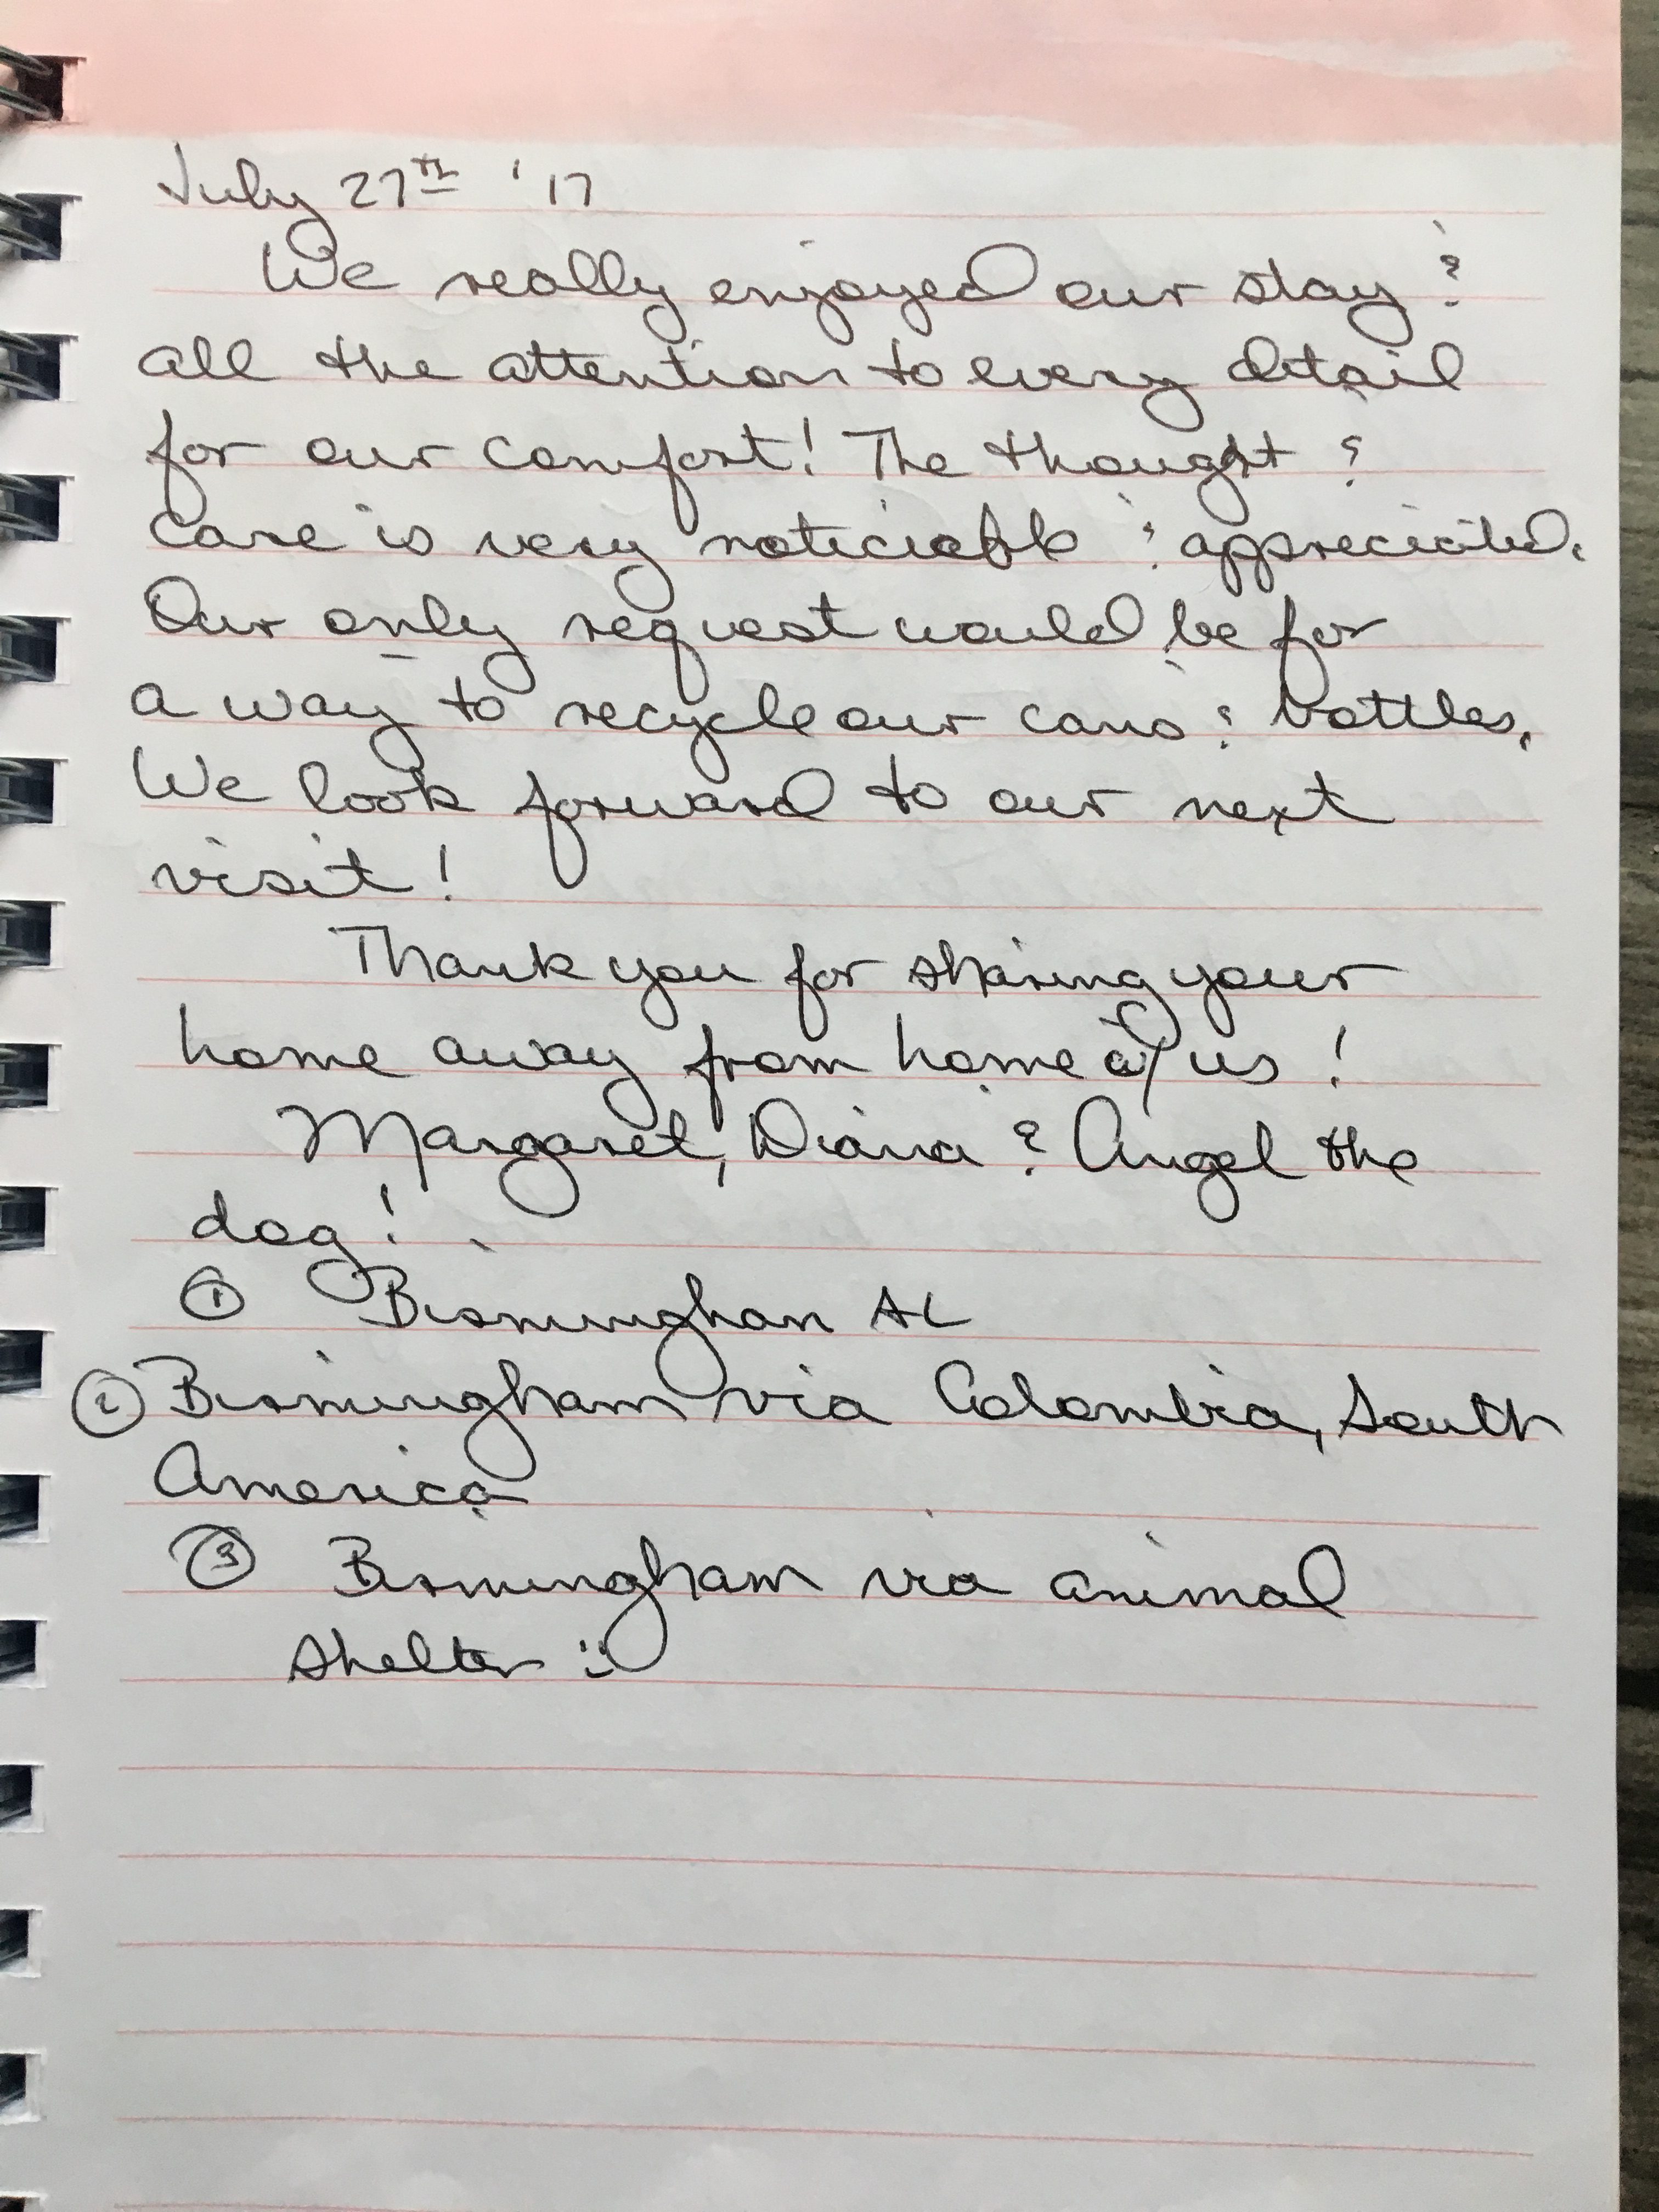 July 27th '17
We really enjoyed our stay &
all the attention to every detail
for our comfort! The thought &
care is very noticiable & appreciated.
Our only request would be for
a way to recycle our cans & bottles.
We look forward to our next
visit!
Thank you for sharing your
home away from home w/ us!
Margaret, Diana & Angel the
dog!
① Birmingham AL
② Birmingham via Colombia, South
America
③ Birmingham via animal
shelter :)